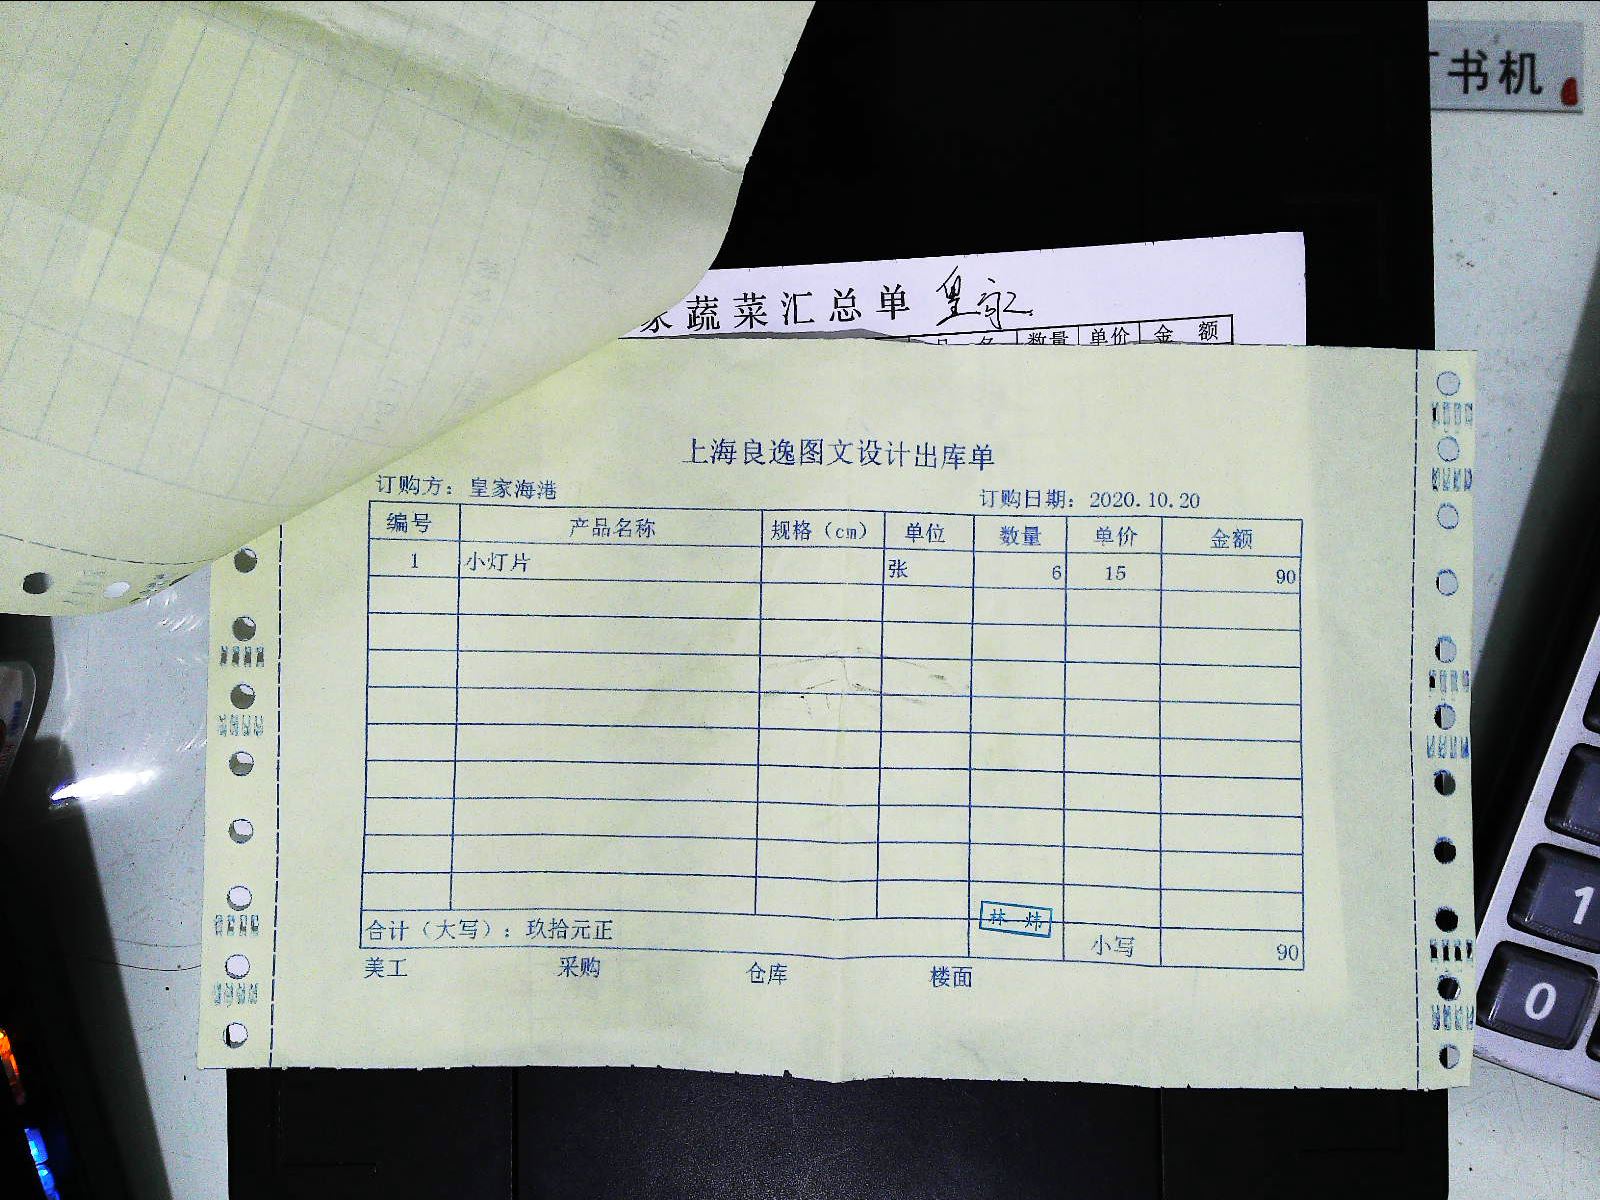 书机
蔬菜汇总单 皇家
品 名 数量 单价 金 额
上海良逸图文设计出库单
订购方：皇家海港 订购日期：2020.10.20
编号 产品名称 规格（cm） 单位 数量 单价 金额
1 小灯片 张 6 15 90
合计（大写）：玖拾元正 林 炜 小写 90
美工 采购 仓库 楼面
1
0